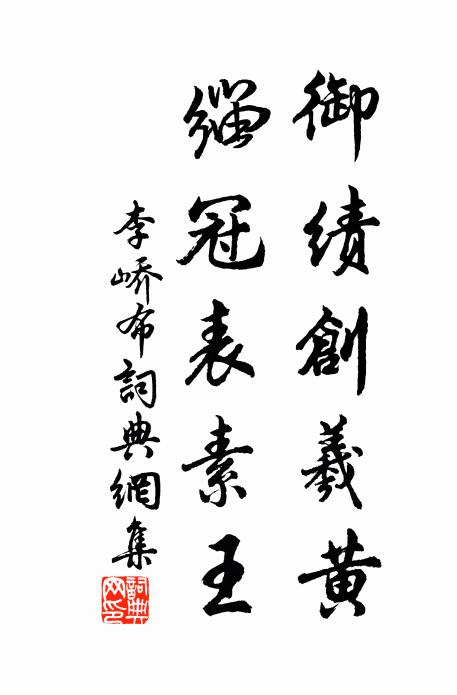 御績創羲黄
緇冠表素王
李嶠布詞典網集
詞典网印